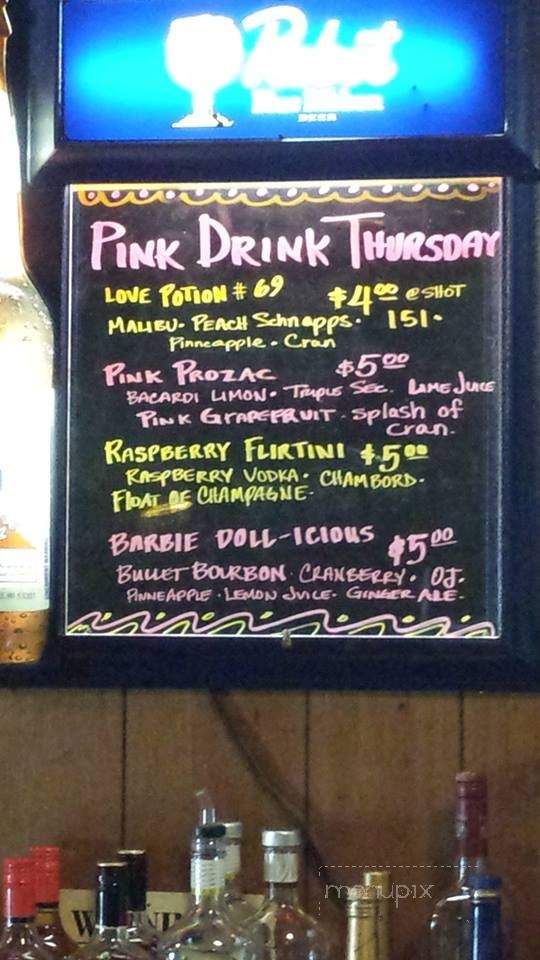 Pabst
Blue Ribbon
BEER
PINK DRINK THURSDAY
LOVE POTION # 69 $4.00 @ SHOT
MALIBU · PEACH Schnapps · 151 ·
Pinneapple · Cran
PINK PROZAC $5.00
BACARDI LIMON · TRIPLE SEC. LIME JUICE
PINK GRAPEFRUIT · Splash of
cran.
RASPBERRY FLIRTINI $5.00
RASPBERRY VODKA · CHAMBORD ·
FLOAT OF CHAMPAGNE ·
BARBIE DOLL-ICIOUS $5.00
BULLET BOURBON · CRANBERRY · OJ ·
PINNEAPPLE · LEMON JUICE · GINGER ALE ·
menupix